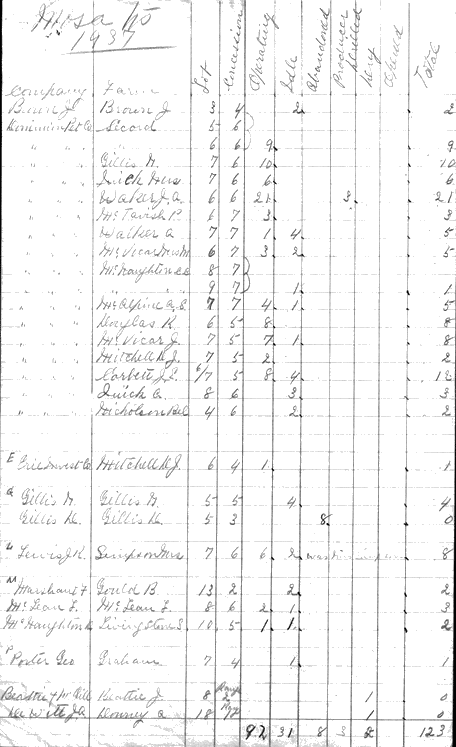 Mosa Tp
1937
Company Farm Lot Concession Operating Idle Abandoned Producer Drilled Dry Total
Brown J. Brown J 3 4 2 2
Dominion Pet Co Secord 5 6
" " " 6 6 9 9
" " " Gillis N. 7 6 10 10
" " " Quick Mrs 7 6 6 6
" " " Walker J.A. 6 6 21 3 21
" " " McTavish P. 6 7 3 3
" " " Walker A 7 7 1 4 5
" " " McVicar Mrs M 6 7 3 2 5
" " " McNaughton 8 7
" " " " 9 7 1 1
" " " McAlpine A.E. 7 7 4 1 5
" " " Douglas K. 6 5 8 8
" " " McVicar J. 7 5 7 1 8
" " " Mitchell J. 7 5 2 2
" " " Corbett J.E. 6/7 5 8 4 12
" " " Quick A. 8 6 3 3
" " " Nicholson 4 6 2 2
E Erie Invest Co Mitchell J. 6 4 1 1
G Gillis N. Gillis N. 5 5 4 4
Gillis K. Gillis K. 5 3 8 0
L Lewis J.K. Simpson Mrs 7 6 6 2 8
M Marshall F Gould B. 13 2 2 2
McLean L. McLean L. 8 6 2 1 3
McNaughton Livingstone 10 5 1 1 2
P Porter Geo Graham 7 4 1 1
Beattie J 8 Range 2 1 0
DeWitt J.A. 18 1 0
92 31 8 3 2 123